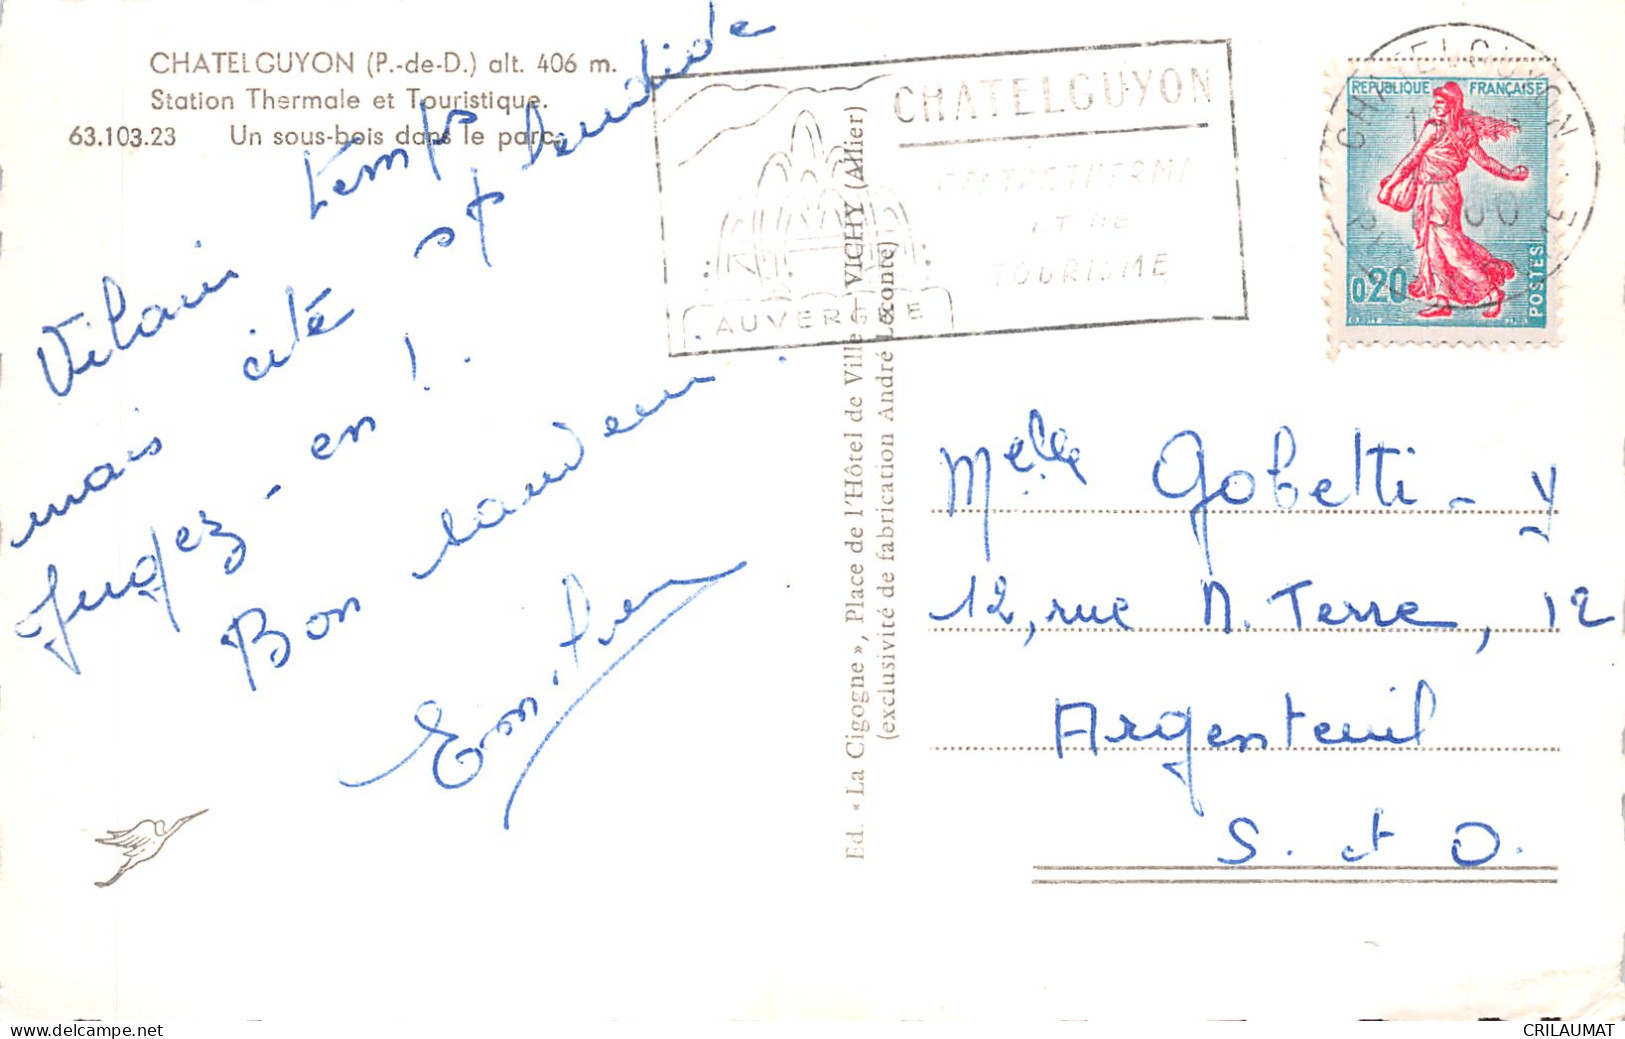 CHATELGUYON (P.-de-D.) alt. 406 m.
Station Thermale et Touristique.
63.103.23 Un sous-bois dans le parc.
Vilain temps
mais cité splendide
Jugez-en !
Bon souvenir.
Ed. « La Cigogne », Place de l'Hôtel de Ville - VICHY (Allier)
(exclusivité de fabrication André Leconte)
CHATELGUYON
ET DE
TOURISME
AUVERGNE
CHATELGUYON
REPUBLIQUE FRANÇAISE
0,20
POSTES
Melle Gobetti - Y
12, rue N. Terre, 12
Argenteuil
S. et O.
CRILAUMAT
www.delcampe.net